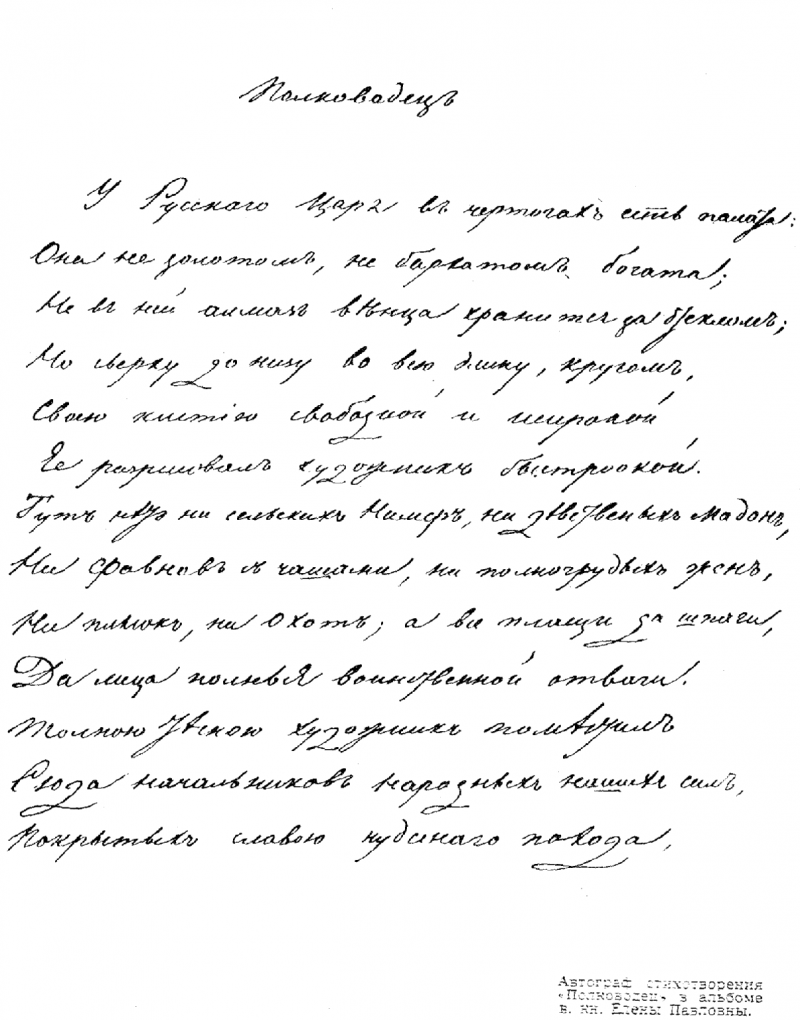 Полководецъ
У Русскаго Царя въ чертогахъ есть палата:
Она не золотомъ, не бархатомъ богата;
Не въ ней алмазъ вѣнца хранится за стекломъ;
Но сверху до низу во всю длину, кругомъ,
Своею кистію свободной и широкой,
Ее разрисовалъ художникъ быстроокой.
Тутъ нѣтъ ни сельскихъ Нимфъ, ни дѣвственныхъ мадонъ,
Ни Фавновъ съ чашами, ни полногрудыхъ женъ,
Ни плясокъ, ни охотъ; а все плащи да шпаги,
Да лица полныя воинственной отваги.
Толпою тѣсною художникъ помѣстилъ
Сюда начальниковъ народныхъ нашихъ силъ,
Покрытыхъ славою чудеснаго похода,
Автограф стихотворения
«Полководец» в альбоме
в. кн. Елены Павловны.